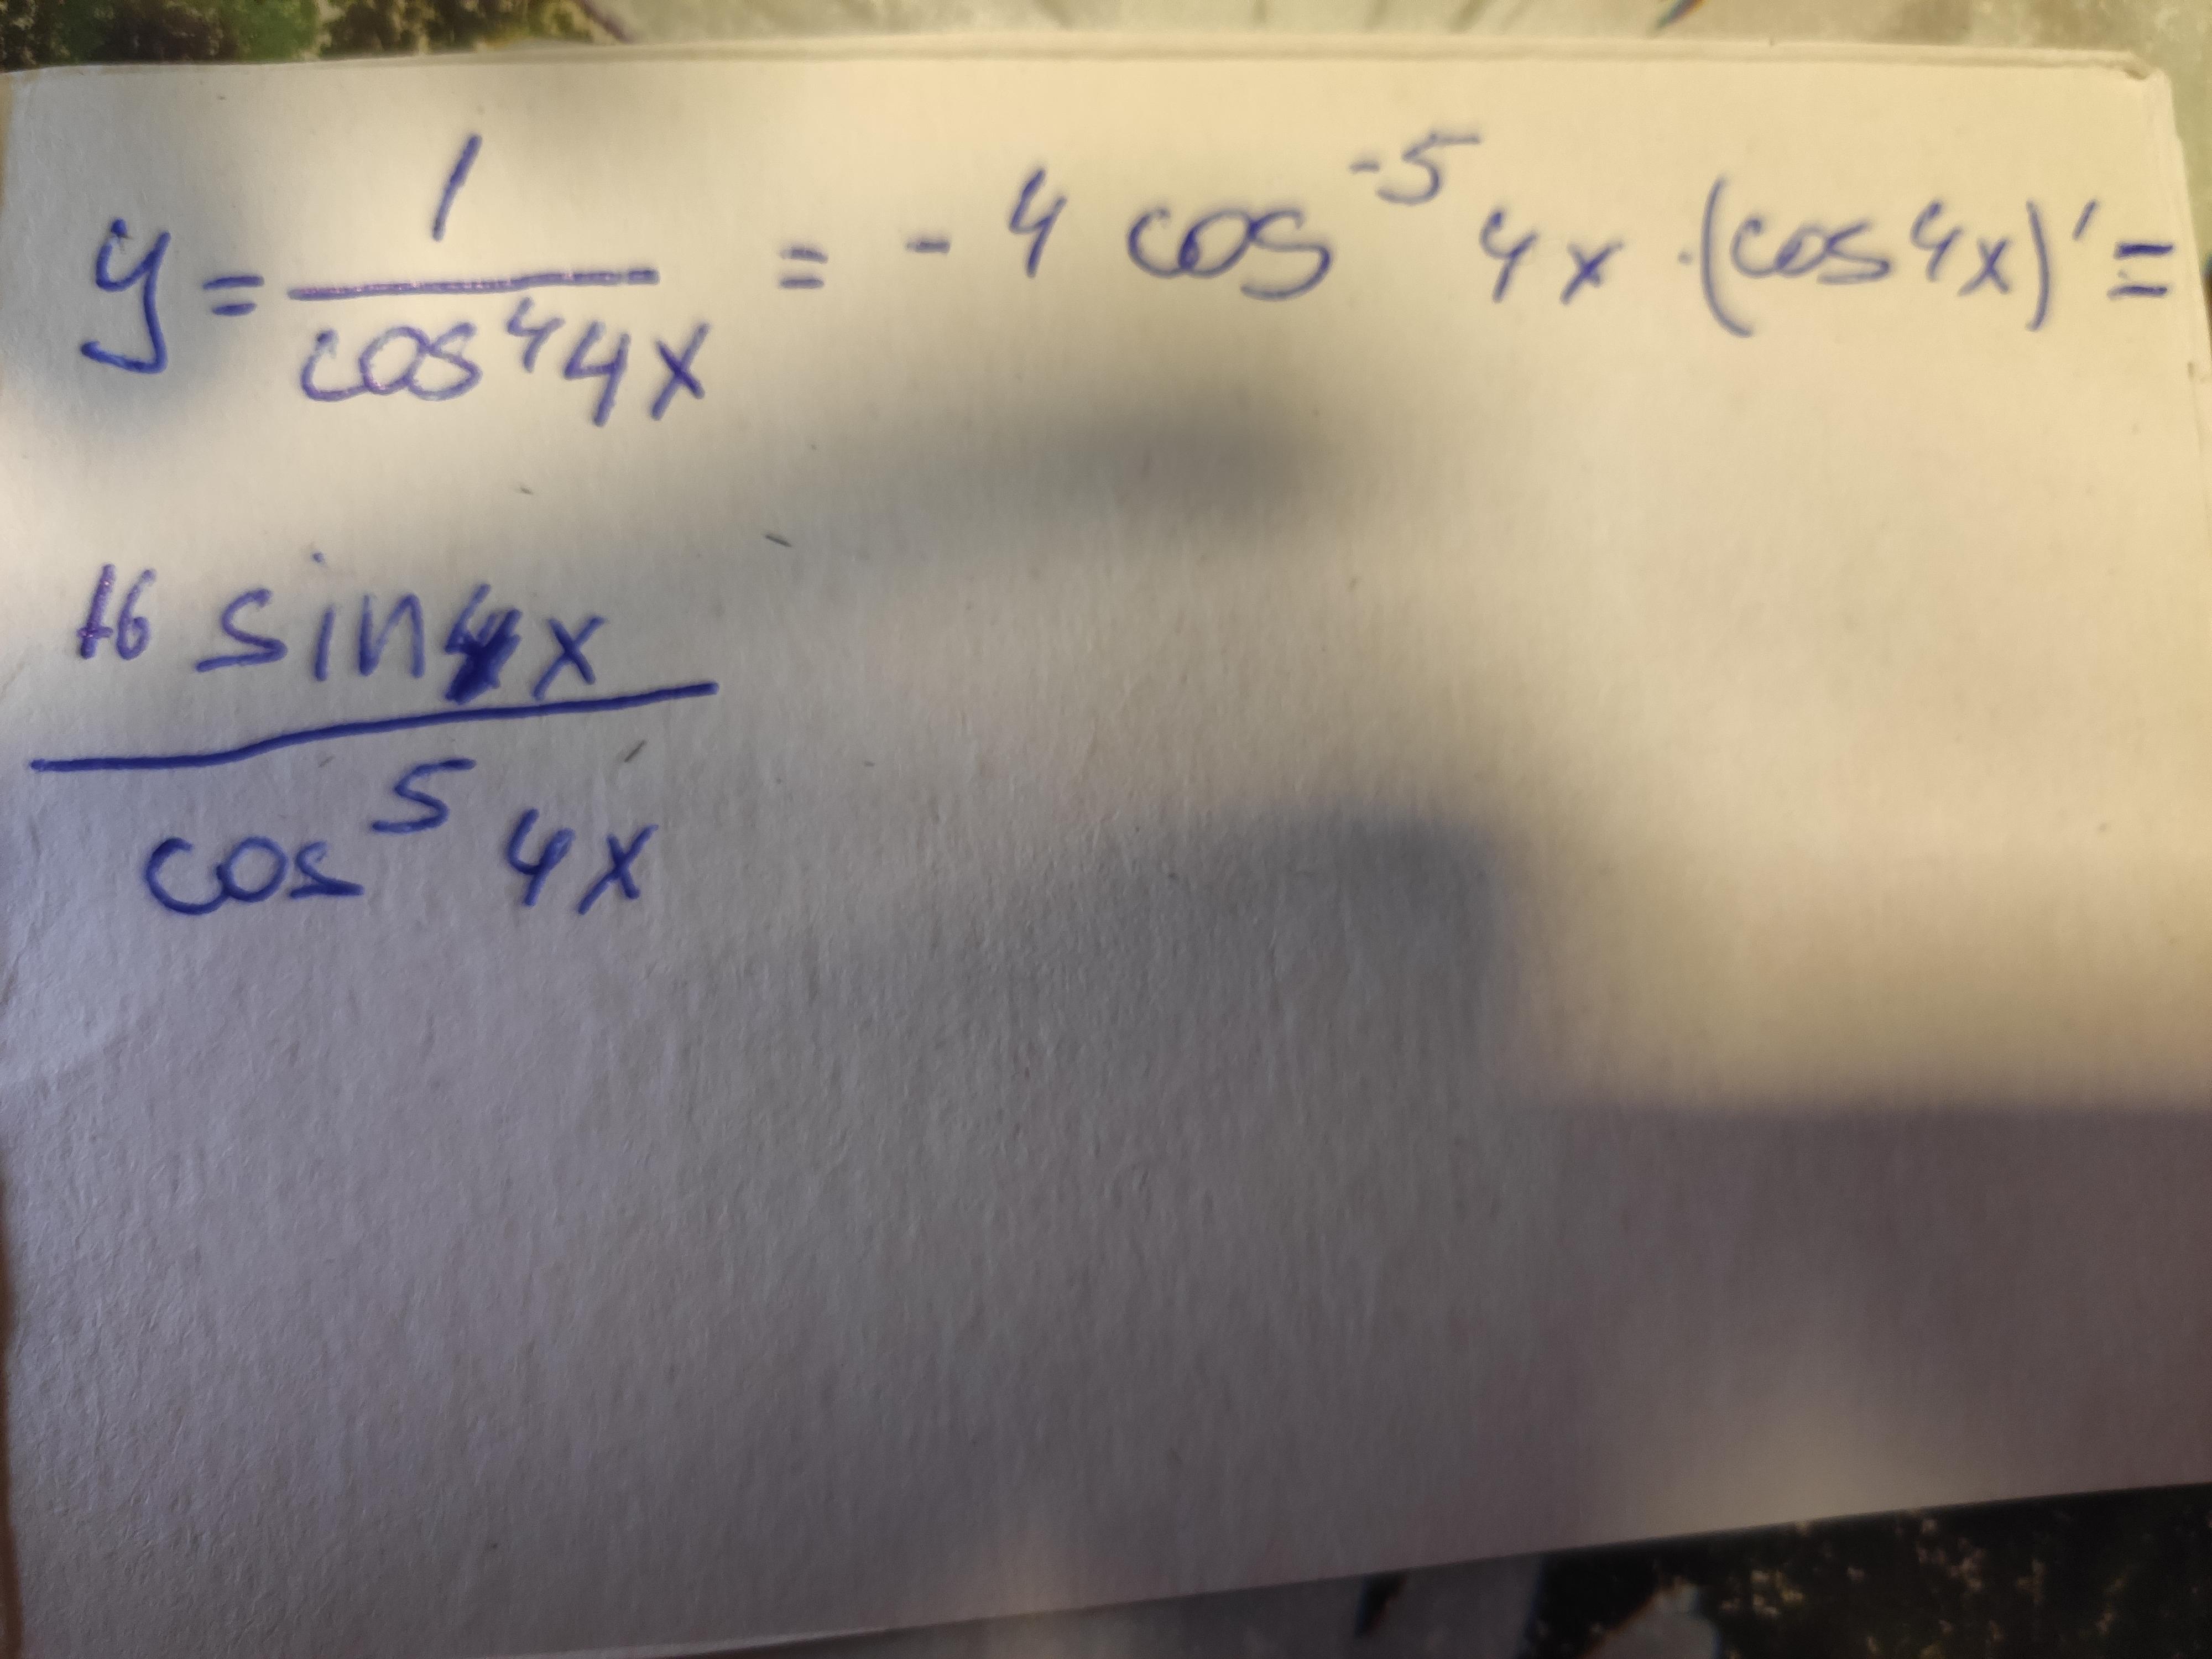 y = 1/cos⁴4x = -4 cos⁻⁵ 4x · (cos4x)' =
16 sin4x / cos⁵ 4x